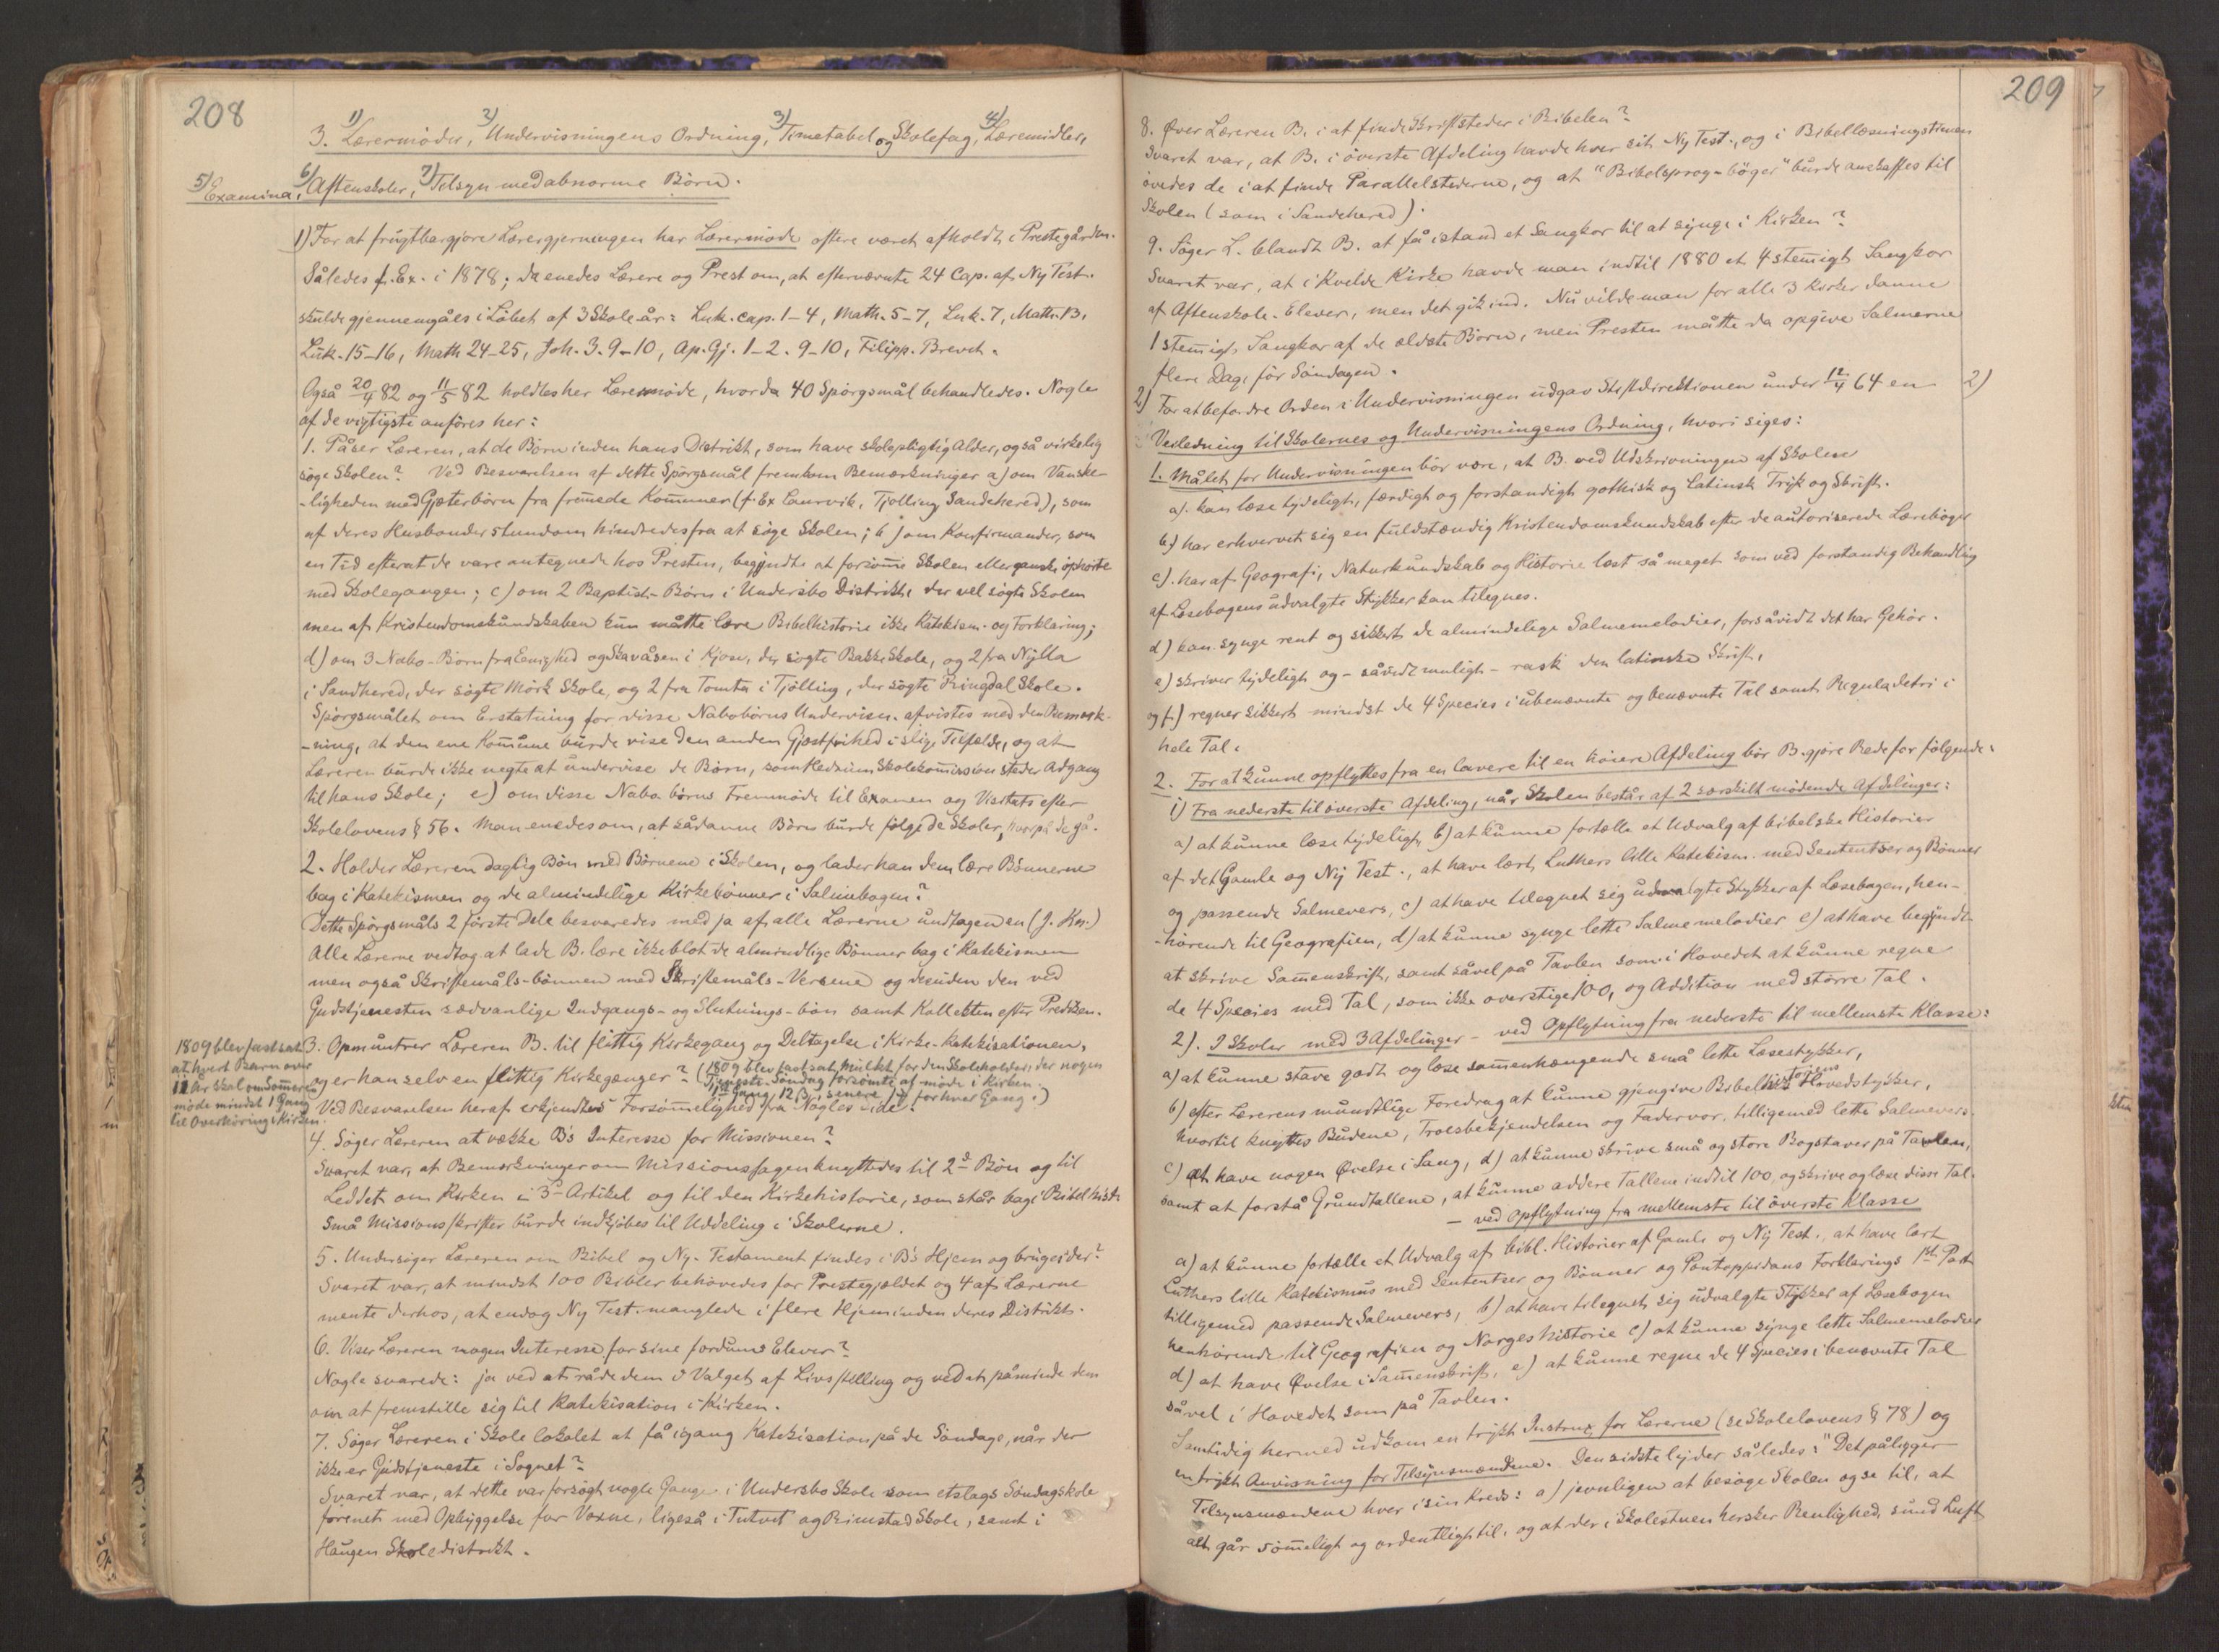 208
3. 1) Lærermöder, 2) Undervisningens Ordning, 3) Timetabel og Skolefag, 4) Læremidler,
5) Examina, 6) Aftenskoler, 7) Tilsyn med abnorme Börn.
1) For at frugtbargjöre Lærergjerningen har Lærermöde oftere været afholdt i Prestegården.
Således f. Ex. i 1878; da enedes Lærere og Prest om, at efternævnte 24 Cap. af Ny Test.
skulde gjennemgåes i Löbet af 3 Skole-år: Luk. cap. 1-4, Math. 5-7, Luk. 7, Math. 13,
Luk. 15-16, Math 24-25, Joh. 3. 9-10, Ap. Gj. 1-2. 9-10, Filipp. Brevet.
Også 20/4 82 og 11/5 82 holdtes her Læremöde, hvor da 40 Spörgsmål behandledes. Nogle
af de vigtigste anföres her:
1. Påser Læreren, at de Börn inden hans Distrikt, som have skolepligtig Alder, også virkelig
söge Skolen? Ved Besvarelsen af dette Spörgsmål fremkom Bemærkninger a) om Vanske-
-ligheden med Gjæterbörn fra fremede Komuner (f. Ex Laurvik, Tjölling Sandehered), som
af deres Husbonder stundom hindredes fra at söge Skolen; b) om Konfirmander, som
en Tid efterat de vare antegnede hos Presten, begyndte at forsöme Skolen eller ganske ophörte
med Skolegangen; c) om 2 Baptist-Börn i Undersbo Distrikt, der vel sögte Skolen
men af Kristendomskundskaben kun måtte lære Bibelhistorie ikke Katekism- og Forklaring;
d) om 3 Nabo-Börn fra Eenighed og Skavåsen i Kjose, der sögte Bakke Skole, og 2 fra Nylla
i Sandhered, der sögte Mörk Skole, og 2 fra Tomta i Tjölling, der sögte Ringdal Skole.
Spörgsmålet om Erstatning for disse Nabobörns Undervisn. afvistes med den Bemærk-
-ning, at den ene Komune burde vise den anden Gjæstfrihed i slige Tilfælde, og at
Læreren burde ikke negte at undervise de Börn, som Hedrum Skolekomission steder Adgang
til hans Skole; e) om disse Nabo börns Fremmöde til Examen og Visitats efter
Skolelovens § 56. Man enedes om, at sådanne Börn burde fölge de Skoler, hvorpå de gå.
2. Holder Læreren daglig Bön med Börnene i Skolen, og lader han dem lære Bönnerne
bag i Katekismen og de almindelige Kirkebönner i Salmebogen?
Dette Spörgsmåls 2 förste Dele besvaredes med ja af alle Lærerne undtagen en (J. Kn.)
Alle Lærerne vedtog at lade B. lære ikke blot de almindlige Bönner bag i Katekismen
men også Skriftemåls-bönnen med Skriftemåls-Versene og desuden den ved
Gudstjenesten sædvanlige Indgangs- og Slutnings-bön samt Kollekten efter Prediken.
3. Opmuntrer Læreren B. til flittig Kirkegang og Deltagelse i Kirke-Katekisationen,
og er han selv en flittig Kirkegænger? (1809 blev fastsat Mulkt for den Skoleholder, der nogen
Tjeneste-Söndag forsömte at möde i Kirken.
1ste Gang 12 ß, senere for hver Gang.)
1809 blev fastsat
at hvert Barn over
12 År skal om Someren
möde mindst 1 Gang
til Overhöring i Kirken.
Ved Besvarelsen heraf erkjendtes Forsömelighed fra Nogles Side.
4. Söger Læreren at vække B's Interesse for Missionen?
Svaret var, at Bemærkninger om Missionssagen knyttedes til 2d Bön og til
Leddet om Kirken i 3d Artikel og til den Kirkehistorie, som står bag i Bibelhist.
Små Missionsskrifter burde indkjöbes til Uddeling i Skolerne.
5. Undersöger Læreren om Bibel og Ny-Testament findes i B's Hjem og bruges der?
Svaret var, at mindst 100 Bibler behövedes for Prestegjældet og 4 af Lærerne
mente derhos, at endog Ny Test. manglede i flere Hjem inden deres Distrikt.
6. Viser Læreren nogen Interesse for sine fordums Elever?
Nogle svarede: ja ved at råde dem i Valget af Livsstilling og ved at påminde dem
om at fremstille sig til Katekisation i Kirken.
7. Söger Læreren i Skole lokalet at få igang Katekisation på de Söndage, når der
ikke er Gudstjeneste i Sognet?
Svaret var, at dette var forsögt nogle Gange i Undersbo Skole som etslags Söndagskole
forenet med Opbyggelse for Voxne, ligeså i Tutvet og Rimstad Skole, samt i
Haugen Skoledistrikt.
209
8. Över Læreren B. i at finde Skriftsteder i Bibelen?
Svaret var, at B. i överste Afdeling havde hver sit Ny Test., og i Bibellæsningstimen
övedes de i at finde Parallelstederne, og at "Bibelsprog-böger" burde anskaffes til
Skolen (som i Sandehered).
9. Söger L. blandt B. at få istand et Sangkor til at synge i Kirken?
Svaret var, at i Kvelde Kirke havde man indtil 1880 et 4 stemigt Sangkor
af Aftenskole-Elever, men det gik ind. Nu vilde man for alle 3 Kirker danne
1 stemigt Sangkor af de ældste Börn, men Presten måtte da opgive Salmerne
flere Dage för Söndagen.
2) For at befordre Orden i Undervisningen udgav Stiftdirektionen under 12/4 64 en 2)
Veiledning til Skolernes og Undervisningens Ordning, hvori siges:
1. Målet for Undervisningen bör være, at B. ved Udskrivningen af Skolen
a). kan læse tydeligt, færdigt og forstandigt gothisk og Latinsk Tryk og Skrift.
b) har erhvervet sig en fuldstændig Kristendomskundskab efter de autoriserede Læreböger
c). har af Geografi, Naturkundskab og Historie læst så meget som ved forstandig Behandling
af Læsebogens udvalgte Stykker kan tilegnes.
d) kan synge rent og sikkert de almindelige Salmemelodier, forsåvidt det har Gehör.
e) skriver tydeligt og - såvidt muligt - rask den latinske Skrift,
og f) regner sikkert mindst de 4 Species i ubenævnte og benævnte Tal samt Reguladetri i
hele Tal.
2. For at kunne opflyttes fra en lavere til en höiere Afdeling bör B. gjöre Rede for fölgende:
1) Fra nederste til överste Afdeling, når Skolen består af 2 særskilt mödende Afdelinger:
a) at kunne læse tydeligt, b) at kunne fortælle et Udvalg af bibelske Historier
af det Gamle og Ny Test., at have lært Luthers lille Katekism. med Sententser og Bönner
og passende Salmevers, c) at have tilegnet sig udvalgte Stykker af Læsebogen, hen-
-hörende til Geografien, d) at kunne synge lette Salmemelodier e) at have begyndt
at skrive Samenskrift, samt såvel på Tavlen som i Hovedet at kunne regne
de 4 Species med Tal, som ikke overstige 100, og Addition med större Tal.
2). I Skoler med 3 Afdelinger - ved Opflytning fra nederste til mellemste Klasse:
a) at kunne stave godt og læse samenhængende små lette Læsestykker,
b) efter Lærerens mundtlige Foredrag at kunne gjengive Bibelhistoriens Hovedstykker,
hvortil knyttes Budene, Troesbekjendelsen og Fadervor, tilligemed lette Salmevers
c) at have nogen Övelse i Sang, d) at kunne skrive små og store Bogstaver på Tavlen,
samt at forstå Grundtallene, at kunne addere Tallene indtil 100, og skrive og læse disse Tal.
- ved Opflytning fra mellemste til överste Klasse
a) at kunne fortælle et Udvalg af bibl. Historier af Gamle og Ny Test., at have lært
Luthers lille Katekismus med Sententser og Bönner og Pontoppidans Forklarings 1ste Part
tilligemed passende Salmevers, b) at have tilegnet sig udvalgte Stykker af Læsebogen
henhörende til Geografien og Norges historie c) at kunne synge lette Salmemelodier
d) at have Övelse i Samenskrift, e) at kunne regne de 4 Species i benævnte Tal
såvel i Hovedet som på Tavlen.
Samtidig hermed udkom en trykt Instrux for Lærerne (se Skolelovens § 78) og
en trykt Anvisning for Tilsynsmændene. Den sidste lyder således: "Det påligger
Tilsynsmændene hver i sin Kreds: a) jevnligen at besöge Skolen og se til, at
alt går sömeligt og ordentligt til, og at der i Skolestuen hersker Renlighed, sund Luft